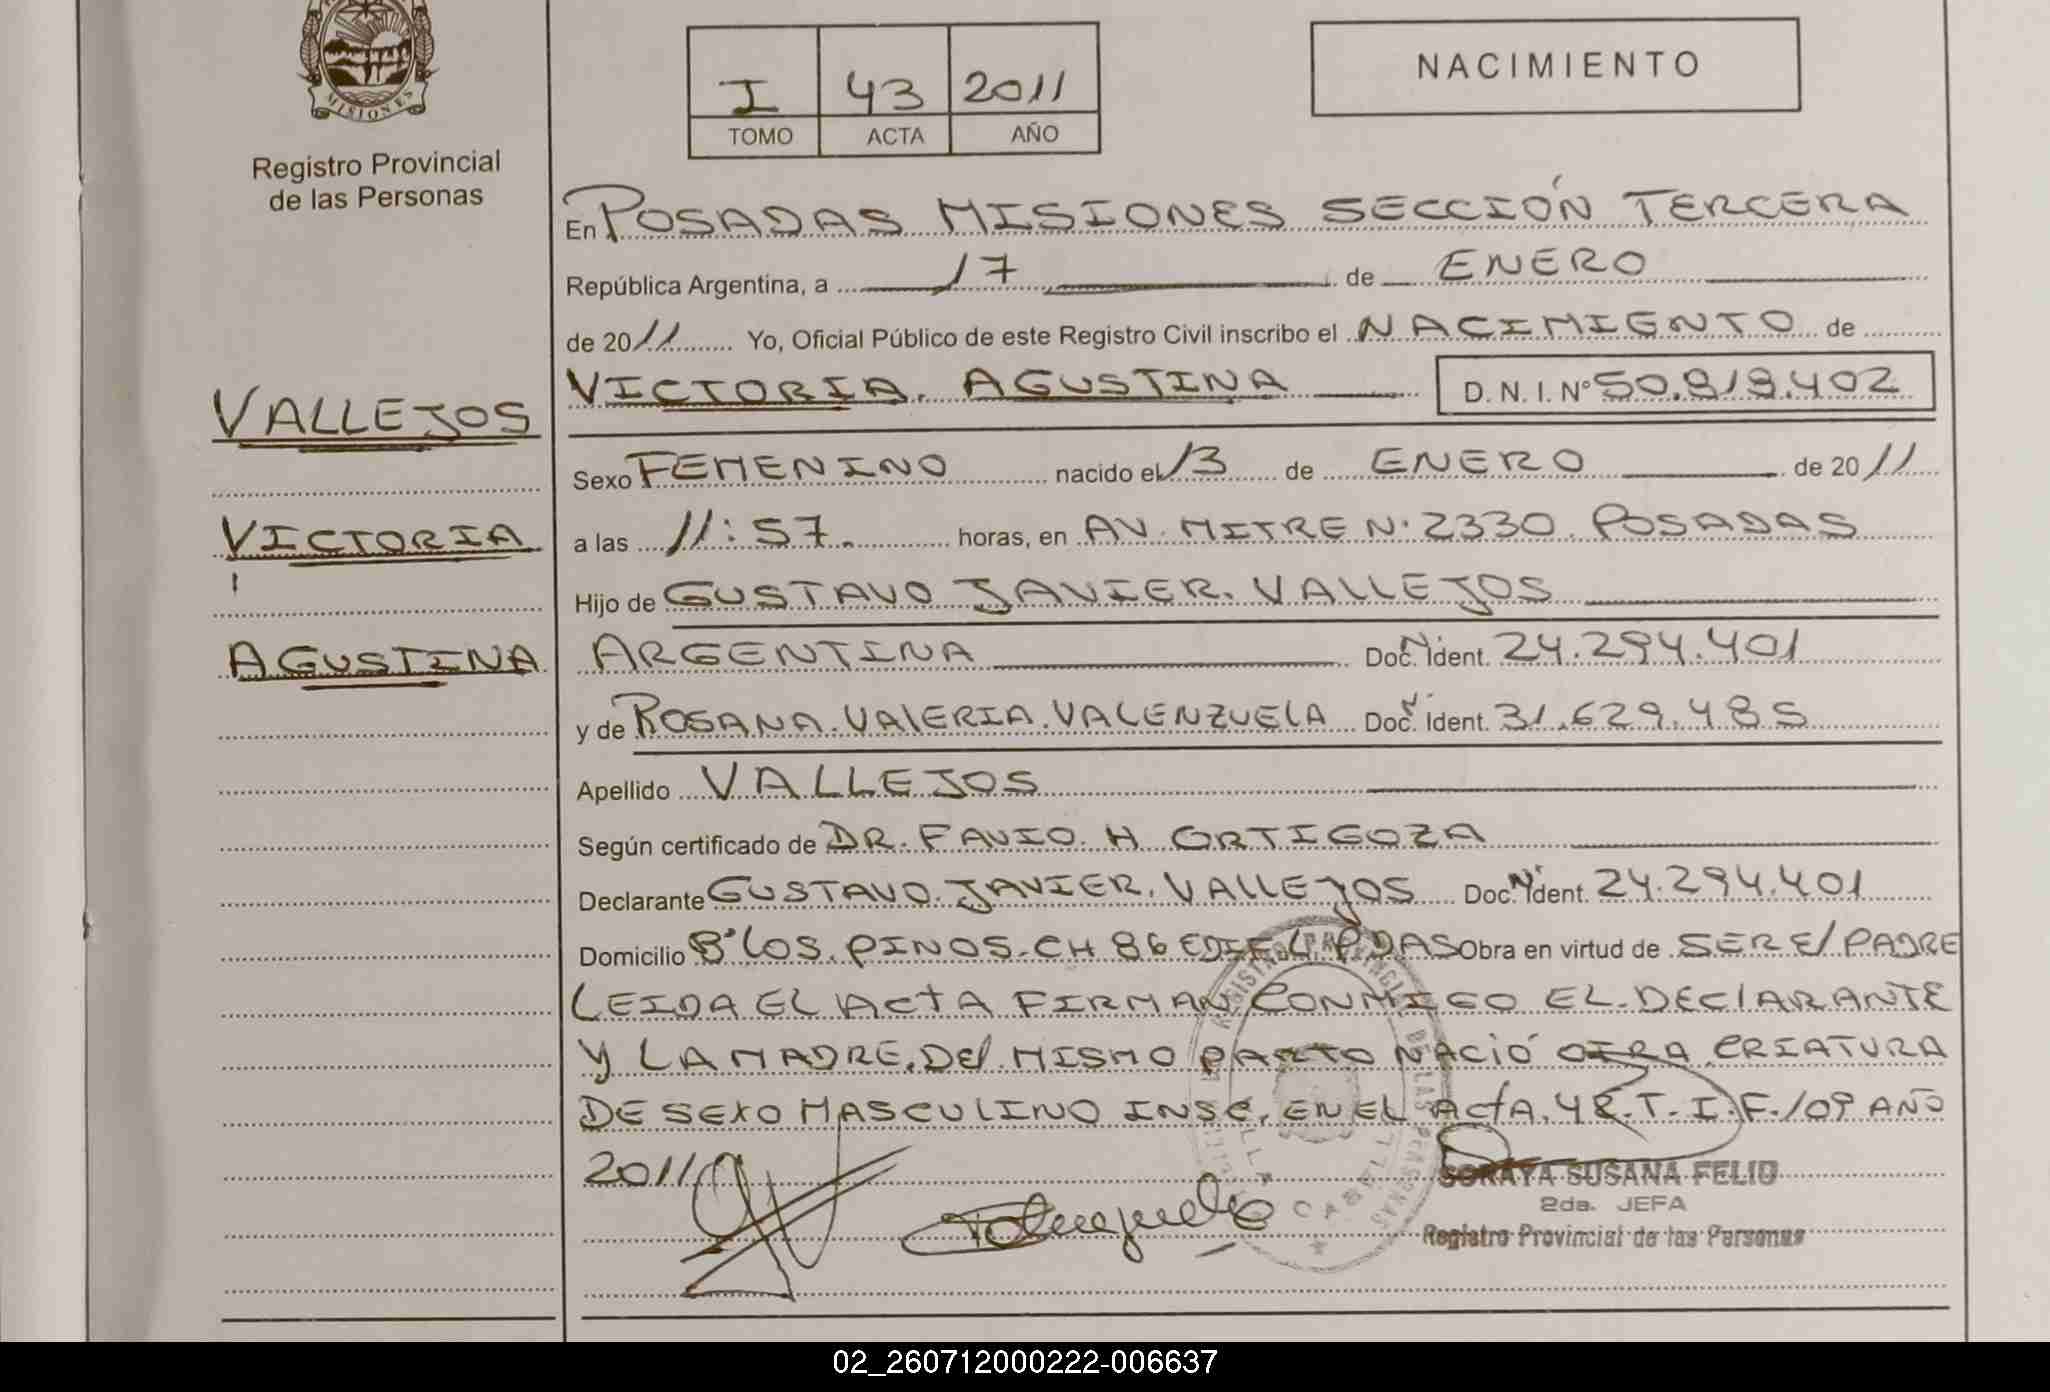 MISIONES
Registro Provincial
de las Personas
I 43 2011
TOMO ACTA AÑO
NACIMIENTO
En POSADAS MISIONES SECCIÓN TERCERA
República Argentina, a 17 de ENERO
de 2011 Yo, Oficial Público de este Registro Civil inscribo el NACIMIENTO de
VICTORIA. AGUSTINA D.N.I. Nº 50.919.402
VALLEJOS
VICTORIA
AGUSTINA
Sexo FEMENINO nacido el 13 de ENERO de 2011
a las 11:57. horas, en AV. MITRE N. 2330. POSADAS
Hijo de GUSTAVO JAVIER. VALLEJOS
ARGENTINA Doc. N. Ident. 24.294.401
y de ROSANA. VALERIA. VALENZUELA Doc. N. Ident. 31.629.485
Apellido VALLEJOS
Según certificado de DR. FAVIO. H ORTIGOZA
Declarante GUSTAVO. JAVIER. VALLEJOS Doc. N. Ident. 24.294.401
Domicilio Bº LOS. PINOS. CH 86 EDIF 4 PDAS Obra en virtud de SER EL PADRE
LEIDA EL ACTA FIRMAN CONMIGO EL. DECLARANTE
Y LA MADRE. DEL MISMO PARTO NACIÓ OTRA CRIATURA
DE SEXO MASCULINO INSC. EN EL ACTA. 42. T. I. F. /09 AÑO
2011
SORAYA SUSANA FELIU
2da. JEFA
Registro Provincial de las Personas
02_260712000222-006637